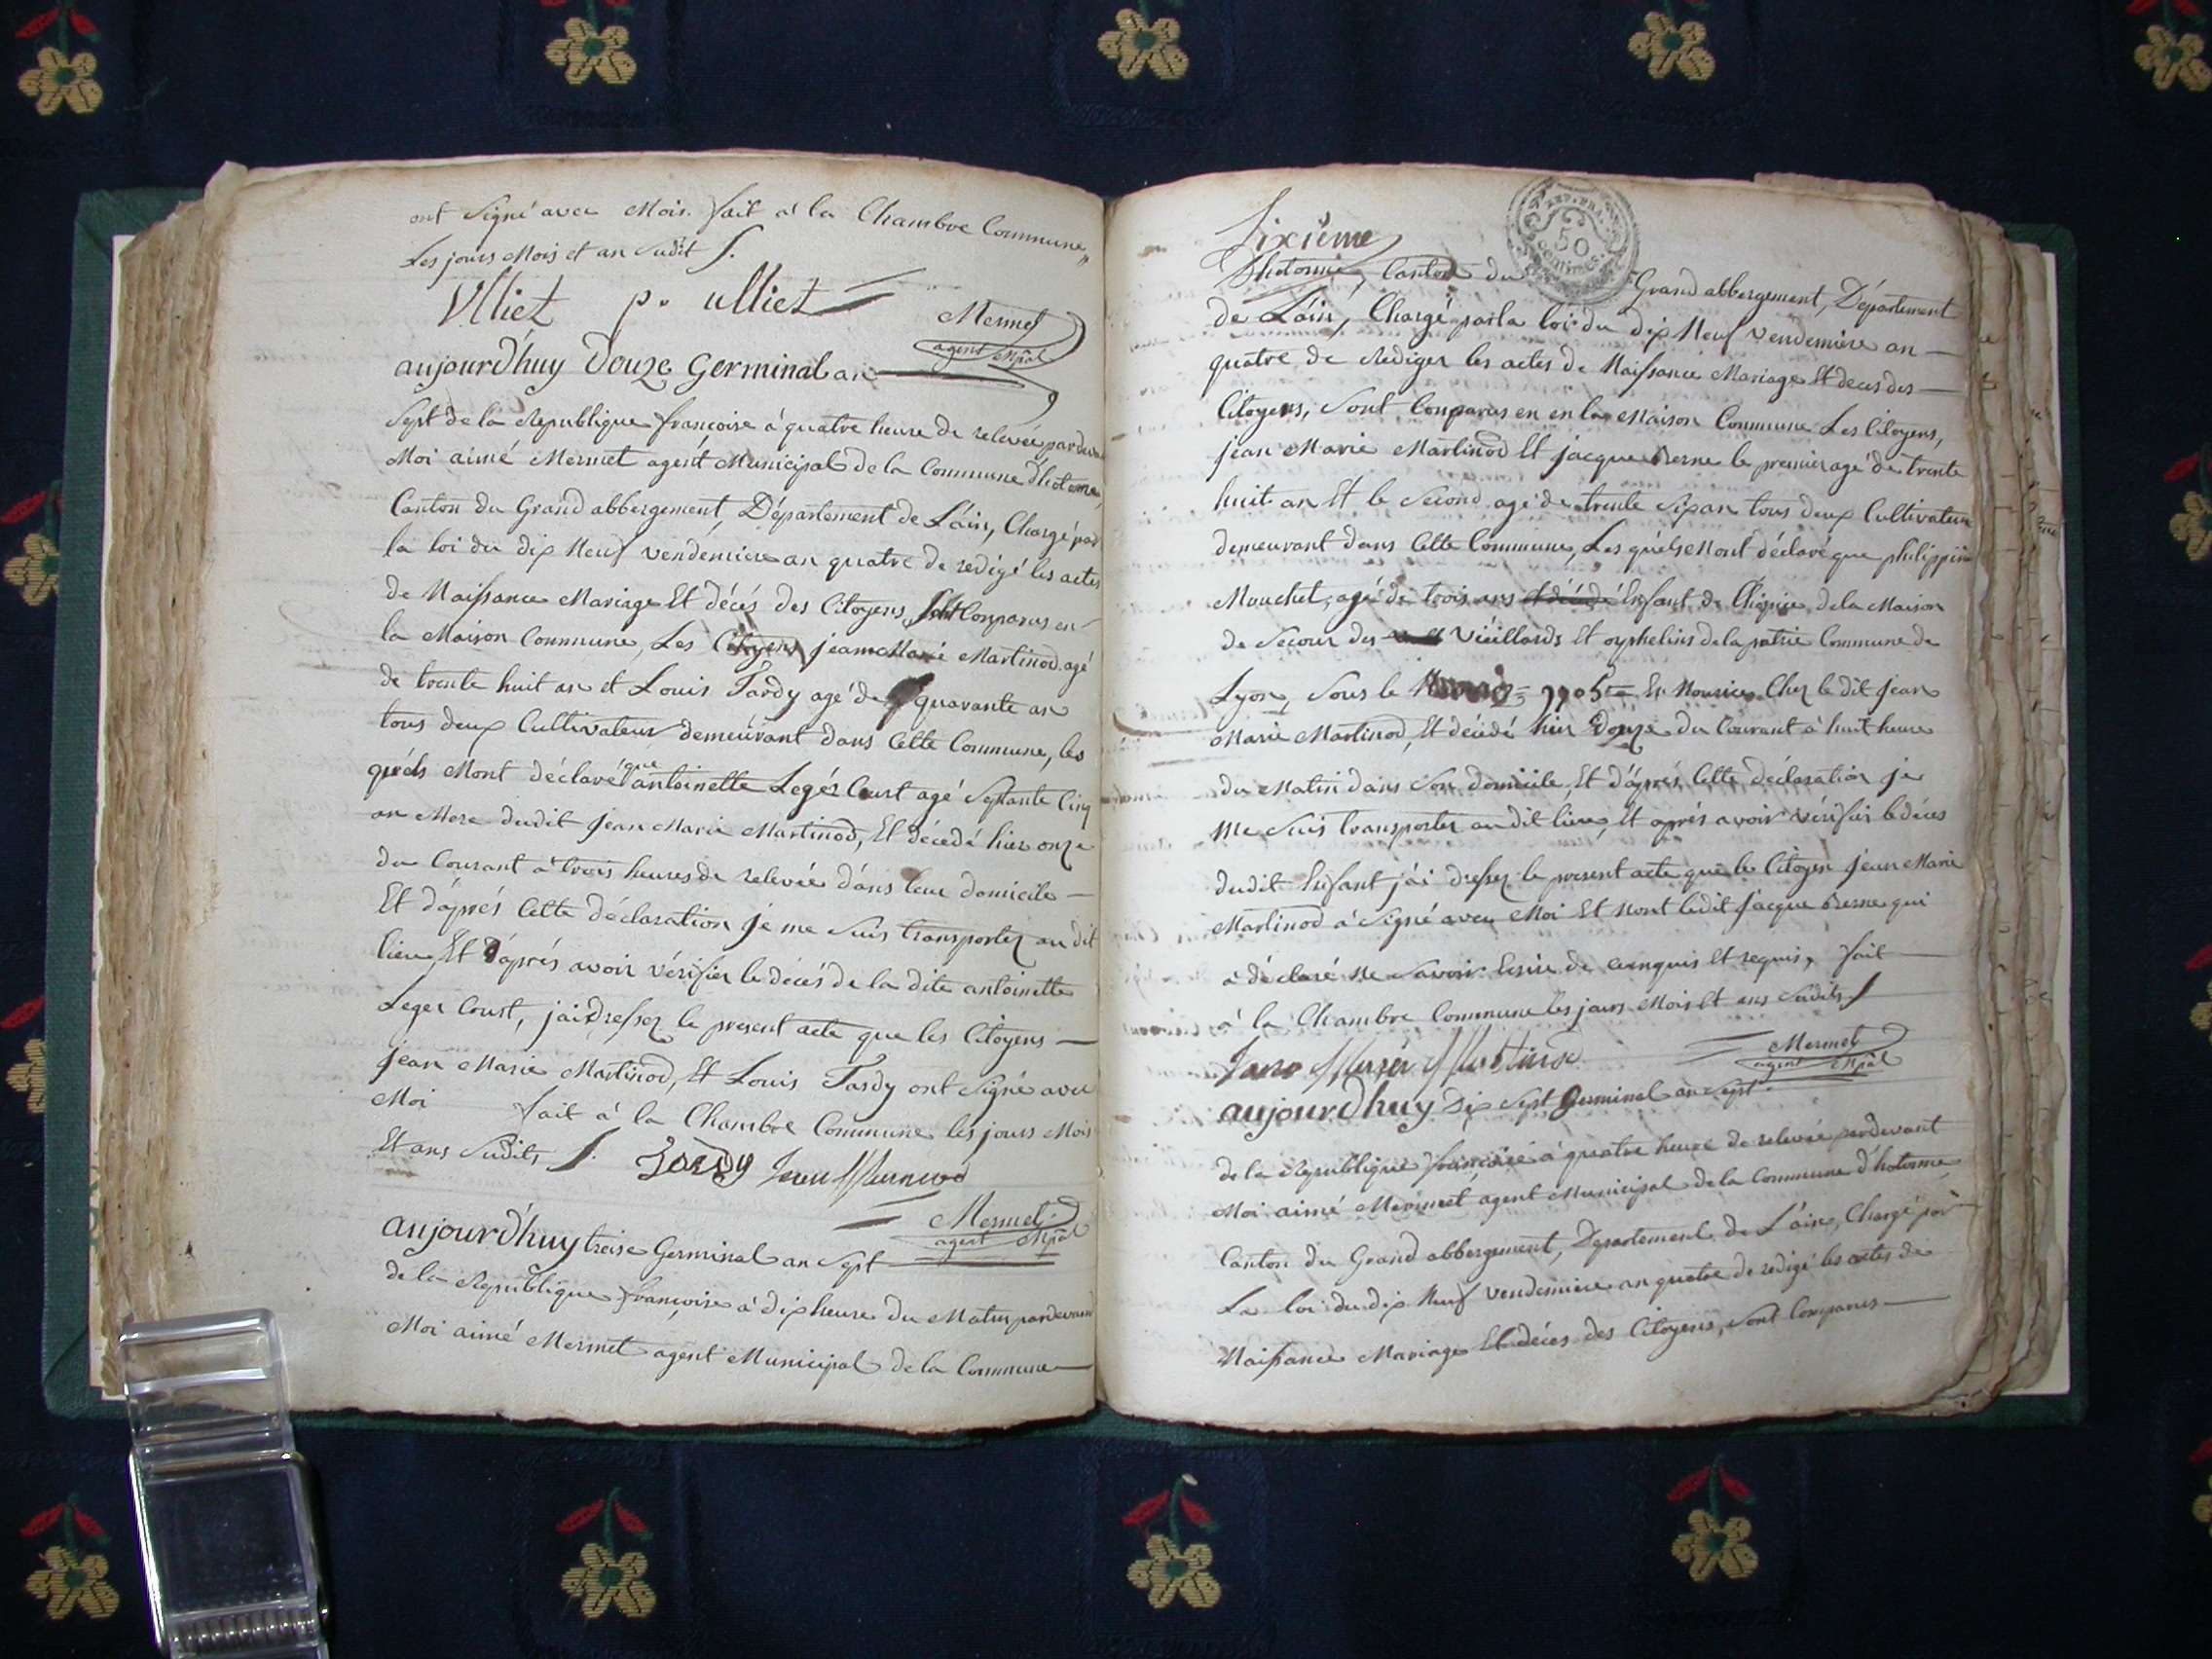 ont Signé avec Moi. fait à la Chambre Commune
Les jours Mois et an Sudit
Ulliet p. ulliet
Mermet
agent Mpâl
aujourd'huy Douze Germinal an
Sept de la Republique françoise à quatre heure de relevée pardevan
Moi aimé Mermet agent Municipal de la Commune d'hotonne
Canton du Grand abbergement, Département de L'ain, Chargé par
la loi du dix Neuf vendemiere an quatre de redigé les actes
de Naissance Mariage Et décés des Citoyens, Sont Comparus en
la Maison Commune, Les Citoyens jean Marie Martinod agé
de trente huit an et Louis Tardy agé de quarante an
tous deux Cultivateur demeurant dans Cette Commune, les
quéls Mont déclaré que antoinette Legér Court agé Septante Cinq
an Mere dudit jean Marie Martinod, Et décedé hier onze
du Courant à trois heures de relevée dans leur domicile
Et d'áprés Cette déclaration je me Suis transportez au dit
lieu, Et d'áprés avoir vérifier le décés de la dite antoinette
Leger Court, jai dressez le present acte que les Citoyens
jean Marie Martinod, Et Louis Tardy ont Signé avec
Moi fait à la Chambre Commune les jours Mois
Et ans Sudits
Tardy
Mermet
agent Mpâl
aujourd'huy treise Germinal an Sept
de la Republique françoise à dix heure du Matin pardevand
Moi aimé Mermet agent Municipal de la Commune
Sixiéme
REP. FRA.
50
centimes
d'hotonne, Canton du Grand abbergement, Département
de L'ain, Chargé par la loi du dix Neuf vendemiere an
quatre de Rediger les actes de Naissance Mariage Et deces des
Citoyens, Sont Comparus en en la Maison Commune Les Citoyens,
jean Marie Martinod Et jacque Berne le premier agé de trente
huit an Et le Second agé de trente Six an tous deux Cultivateur
demeurant dans Cette Commune, Les quéls Mont déclaré que philippine
Mouchet, agé de trois ans Enfant de L'hospice de la Maison
de Secour des Viéillards Et orphelins de la patrie Commune de
Lyon, Sous le En Nourice Chez le dit jean
Marie Martinod, Et décédé hier Douze du Courant à huit heure
du Matin dans Son domicile, Et d'áprés Cette déclaration je
me Suis transportez au dit lieu, Et aprés avoir vérifier le déces
dudit Enfant j'ai dressez le present acte que le Citoyen jean Marie
Martinod à Signé avec Moi Et Nont ledit jacque Berne qui
à déclaré Ne Savoir Ecrire de Cenquis Et requis, fait
à la Chambre Commune les jours Mois Et ans Sudits
Mermet
agent Mpâl
aujourd'huy Dix Sept Germinal an Sept
de la Republique françoise à quatre heure de relevée pardevant
Moi aimé Mermet agent Municipal de la Commune d'hotonne
Canton du Grand abbergement, Departement de L'ain, Chargé par
La loi du dix Neuf vendemiere an quatre de redigé les actes de
Naissance Mariage Et déces des Citoyens, Sont Comparus